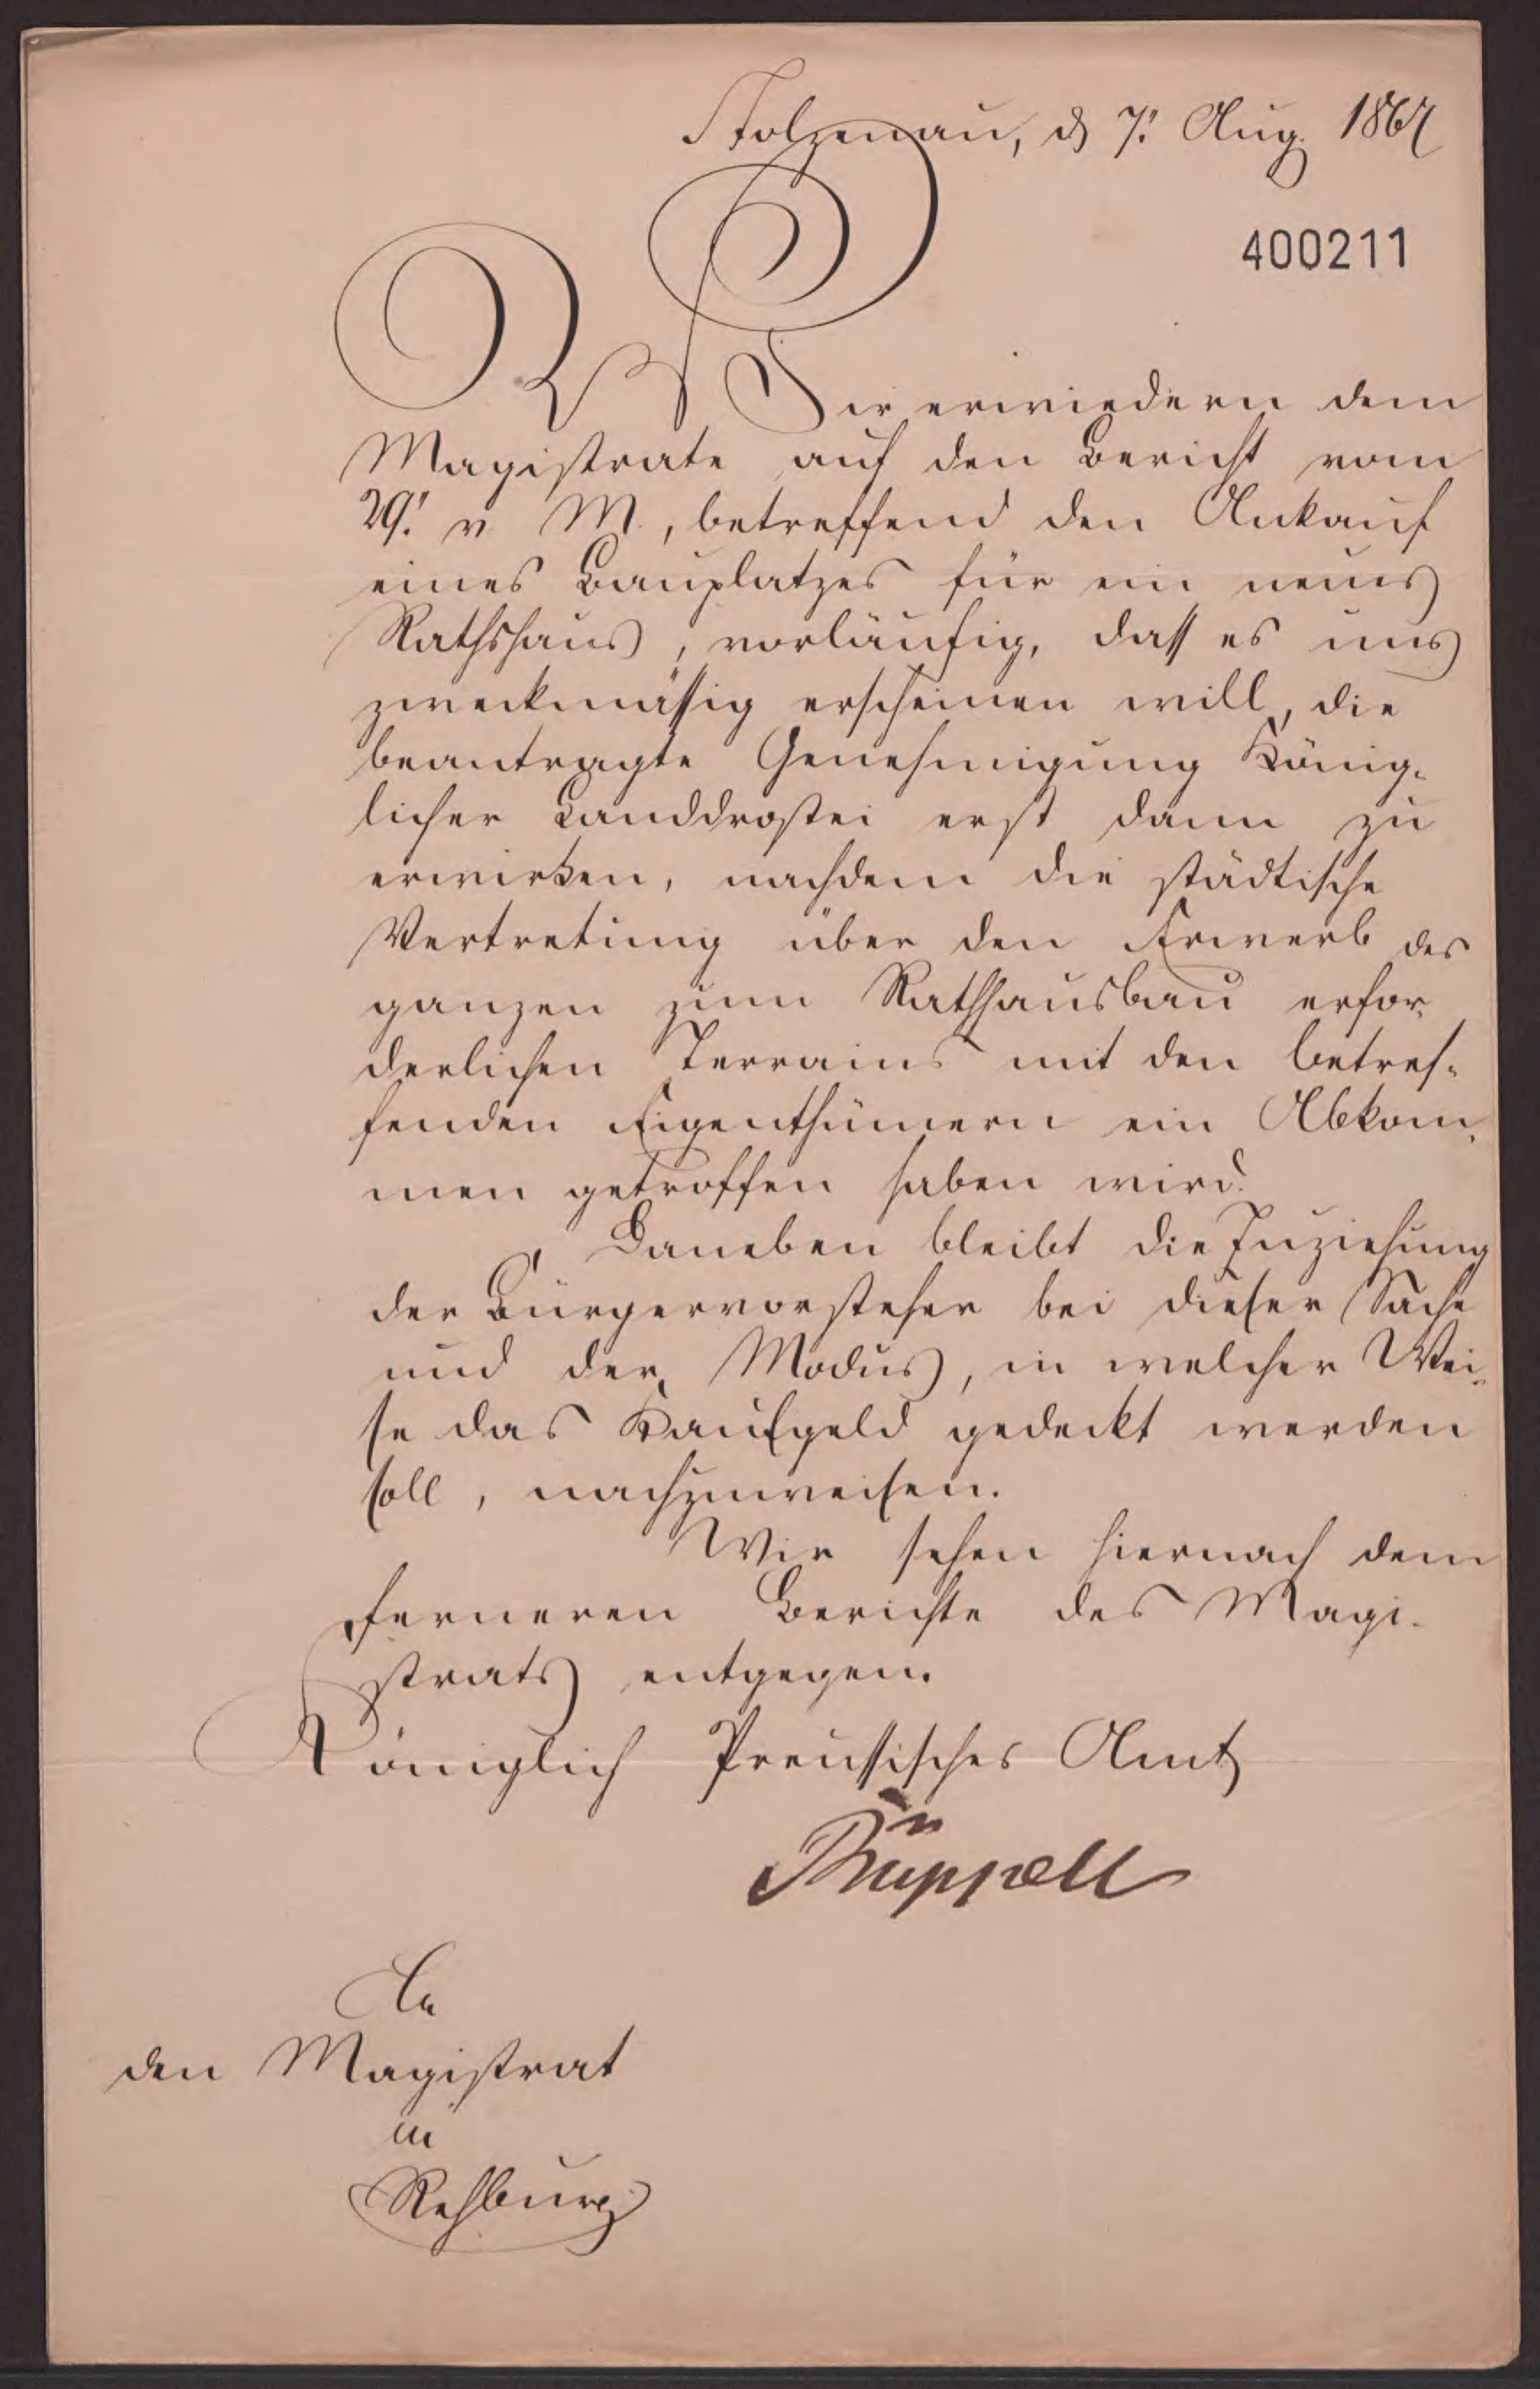 Stolzenau, d 7. Aug. 1867
400211
Wir erwiedern dem
Magistrate auf den Bericht vom
29. v M., betreffend den Ankauf
eines Bauplatzes für ein neues
Rathshaus, vorläufig, dass es uns
zweckmässig erscheinen will, die
beantragte Genehmigung König-
licher Landdrostei erst dann zu
erwirken, nachdem die städtische
Vertretung über den Erwerb des
ganzen zum Rathhausbau erfor-
derlichen Terrains mit den betref-
fenden Eigenthümern ein Abkom-
men getroffen haben wird.
Daneben bleibt die Zuziehung
der Bürgervorsteher bei dieser Sache
und der Modus, in welcher Wei-
se das Kaufgeld gedeckt werden
soll, nachzuweisen.
Wir sehen hiernach dem
ferneren Berichte des Magi-
strats entgegen.
Königlich Preussisches Amt
Rüppell
An
den Magistrat
in
Rehburg